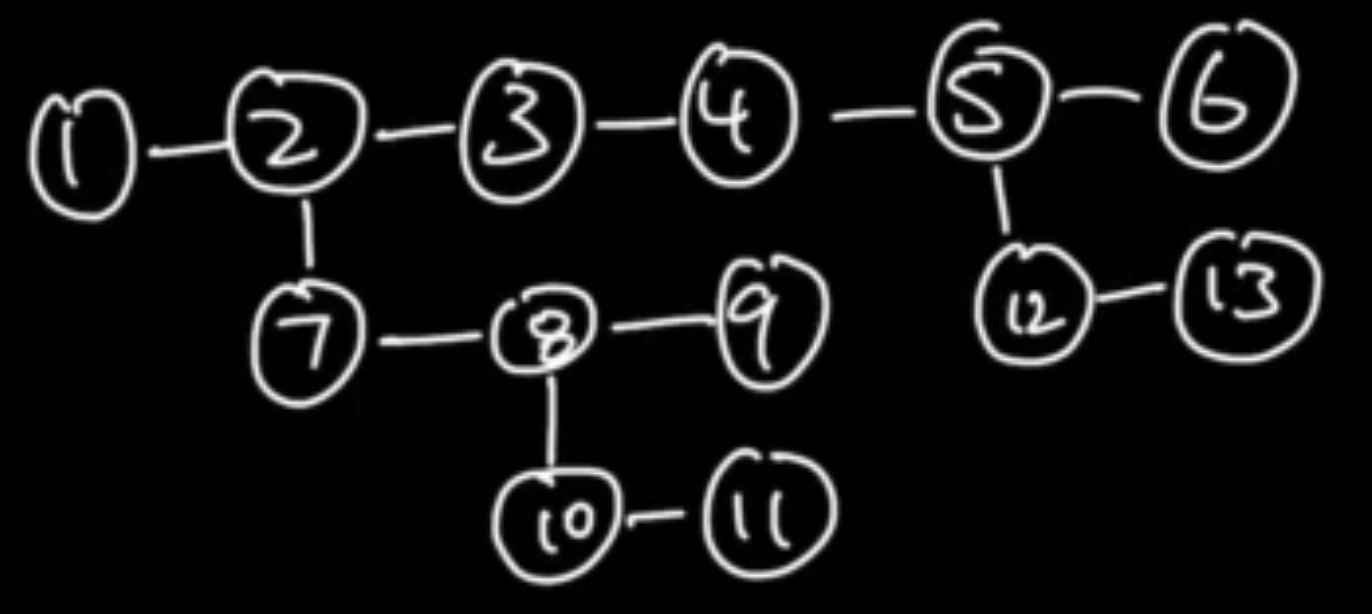 1 2 3 4 5 6
7 8 9 12 13
10 11